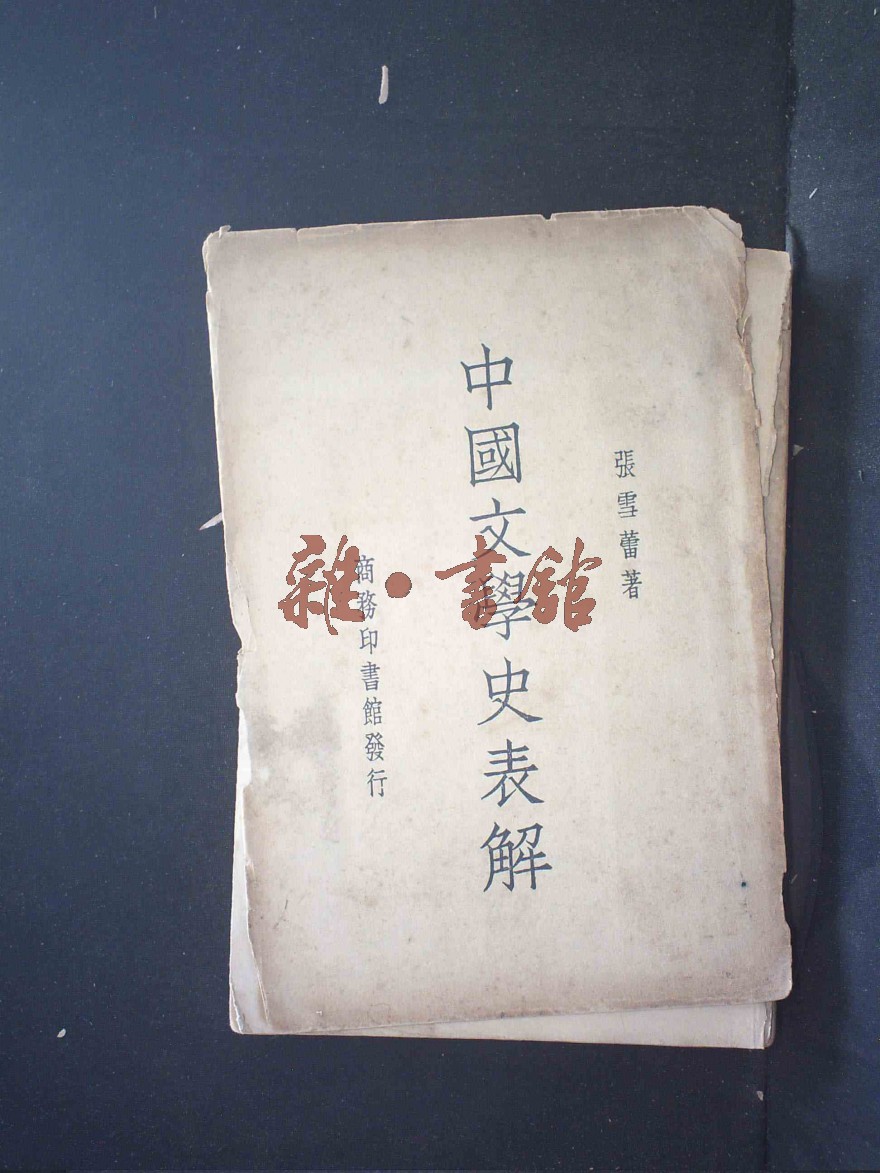 張雪蕾著
中國文學史表解
商務印書館發行
雜·書館